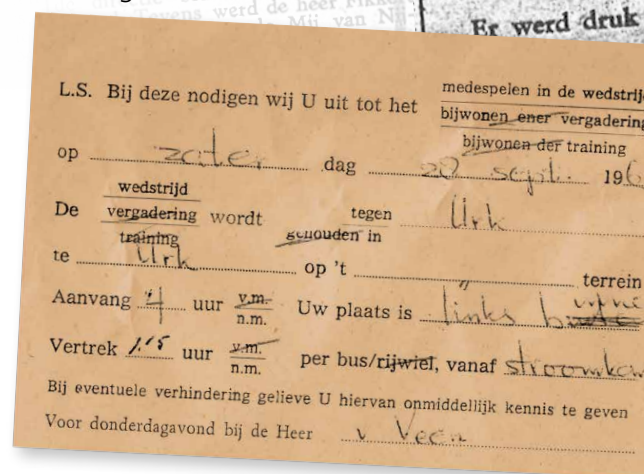 Tevens werd de heer
Mij van
Er werd druk
L.S. Bij deze nodigen wij U uit tot het
medespelen in de wedstrijd
bijwonen ener vergadering
bijwonen der training
op zater dag 20 sept. 196
wedstrijd
De vergadering wordt tegen Urk
training gehouden in
te Urk op 't " terrein
Aanvang 4 uur v.m. Uw plaats is links
n.m.
Vertrek 1.15 uur v.m. per bus/rijwiel, vanaf
n.m.
Bij eventuele verhindering gelieve U hiervan onmiddellijk kennis te geven
Voor donderdagavond bij de Heer v Veen